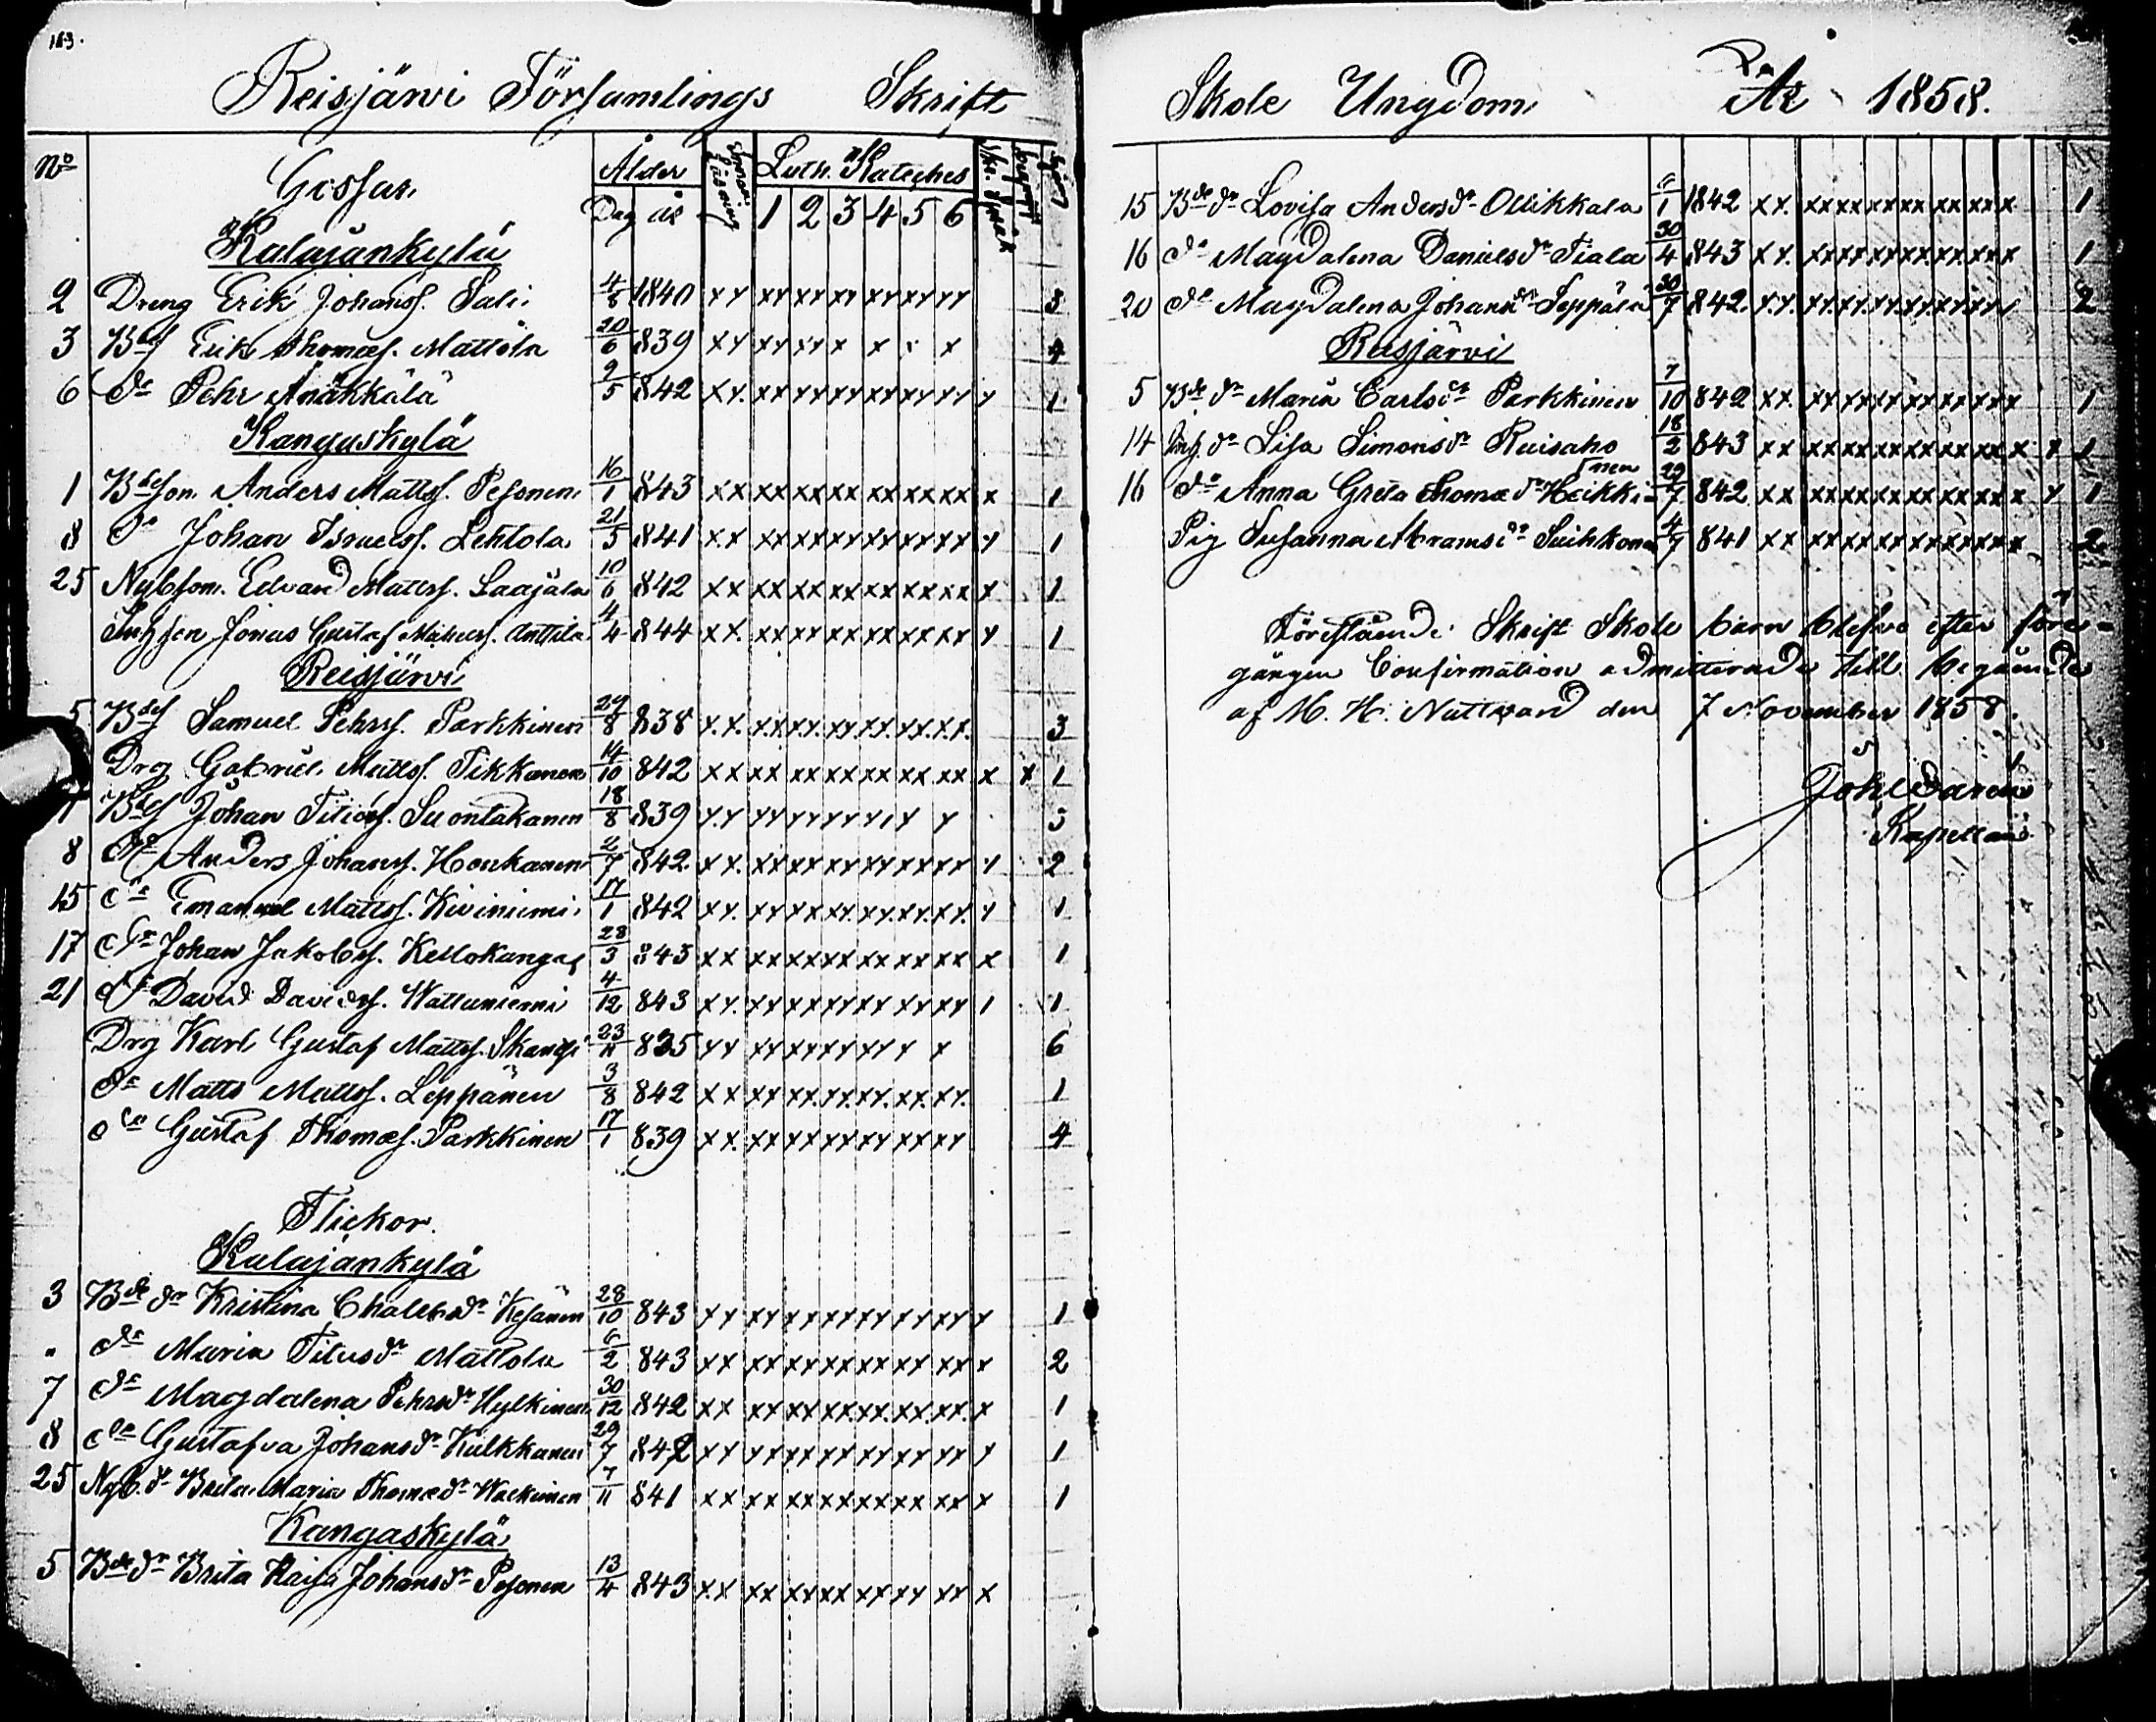 Reisjärvi Församlings Skrift
No Gossar. Ålder Luth. Kateches
Dag år 1 2 3 4 5 6
Kalajankylä
2 Dreng Erik Johanss. Sali 4/8 1840 xx xx xx xx xx xx xx 3
3 Bdes Erik Thomæs. Mattola 20/6 839 xx xx xx x x x 4
6 do Pehr Anäkkälä 9/5 842 xx xx xx xx xx xx xx x 1
Kangaskylä
1 Bdeson Anders Mattss. Pesonen 16/1 843 xx xx xx xx xx xx xx x 1
8 do Johan Israelss. Lehtola 21/5 841 xx xx xx xx xx xx xx x 1
25 Nybson. Edvard Mattss. Laajala 10/6 842 xx xx xx xx xx xx xx x 1
Jonas Gustaf Anttila 4/4 844 xx xx xx xx xx xx xx x 1
Reisjärvi
5 Bdes Samuel Pehrss. Parkkinen 24/8 838 xx xx xx xx xx xx xx 3
Drg Gabriel Mattss. Tikkanen 14/10 842 xx xx xx xx xx xx xx x x 1
7 Bdes Johan Suontakanen 18/8 839 xx xx xx xx xx x x 3
8 do Anders Johanss. Honkanen 2/7 842 xx xx xx xx xx xx xx x 2
15 do Emanuel Mattss. Kiviniemi 17/1 842 xx xx xx xx xx xx xx x 1
17 do Johan Jakobss. Kellokangas 28/3 843 xx xx xx xx xx xx xx x 1
21 do David Davidss. Wattuniemi 4/12 843 xx xx xx xx xx xx xx 1 1
Drg Karl Gustaf Mattss. 23/11 835 xx xx xx xx xx x x 6
do Matts Mattss. Leppänen 3/8 842 xx xx xx xx xx xx xx 1
do Gustaf Thomæs. Parkkinen 17/1 839 xx xx xx xx xx xx xx 4
Flickor.
Kalajankylä
3 Bde dr Kristina Kesänen 28/10 843 xx xx xx xx xx xx xx x 1
" do Maria Titusdr Mattola 6/2 843 xx xx xx xx xx xx xx x 2
7 do Magdalena Pehrsdr Hylkinen 30/12 842 xx xx xx xx xx xx xx x 1
8 do Gustafva Johansdr Kulkkanen 29/7 842 xx xx xx xx xx xx xx x 1
25 Nyb. dr Brita Maria Thomædr 7/11 841 xx xx xx xx xx xx xx x 1
Kangaskylä
5 Bde dr Brita Kaisa Johansdr Pesonen 13/4 843 xx xx xx xx xx xx xx x
Skole Ungdom År 1858.
15 Bde dr Lovisa Andersdr Ollikkala 6/1 1842 xx xx xx xx xx xx xx 1
16 do Magdalena Danielsdr Tiala 30/4 843 xx xx xx xx xx xx xx 1
20 do Magdalena Johansdr Seppälä 30/7 842 xx xx xx xx xx xx xx 2
Reisjärvi
5 Bde dr Maria Carlsdr Parkkinen 7/10 842 xx xx xx xx xx xx xx 1
14 Inh. dr Lisa Simonsdr Ruisaho 18/2 843 xx xx xx xx xx xx xx x 1
16 do Anna Greta Thomædr Heikki-nen 29/7 842 xx xx xx xx xx xx xx x 1
Pig Susanna Abramsdr Suihkonen 4/7 841 xx xx xx xx xx xx xx 2
Förestående Skrift Skole barn blefvo efter före-
gången Confirmation admitterade till begående
af H. H. Nattvard den 7 November 1858.
Joh
Kapellan